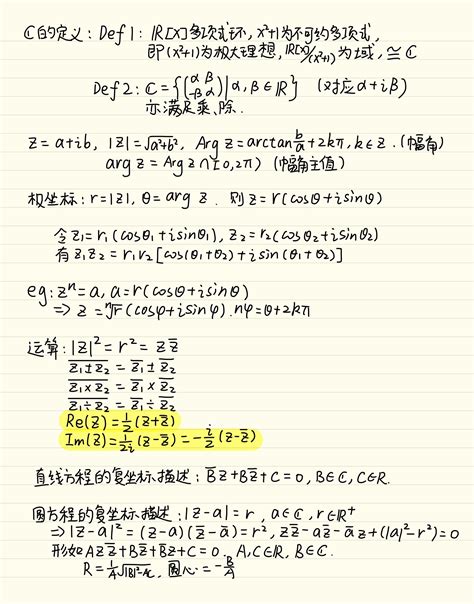 ℂ的定义：Def 1：ℝ[x]多项式环，x²+1为不可约多项式，
即(x²+1)为极大理想，ℝ[x]/(x²+1)为域，≅ℂ
Def 2：ℂ = {(α β -β α) | α, β∈ℝ} (对应α+iβ)
亦满足乘、除．
z = a+ib, |z|=√a²+b², Arg z = arctan b/a + 2kπ, k∈ℤ．(幅角)
arg z = Arg z ∩ [0, 2π) (幅角主值)
极坐标：r=|z|, θ = arg z．则 z = r(cosθ+isinθ)
令z₁=r₁(cosθ₁+isinθ₁), z₂=r₂(cosθ₂+isinθ₂)
有z₁z₂ = r₁r₂[cos(θ₁+θ₂)+isin(θ₁+θ₂)]
eg：zⁿ=a, a=r(cosθ+isinθ)
⇒ z = ⁿ√r (cosφ+isinφ)．nφ=θ+2kπ
运算：|z|² = r² = z z̅
\overline{z₁±z₂} = \overline{z₁} ± \overline{z₂}
\overline{z₁×z₂} = \overline{z₁} × \overline{z₂}
\overline{z₁÷z₂} = \overline{z₁} ÷ \overline{z₂}
Re(z)=½(z+z̅)
Im(z)=1/2i (z-z̅) = -i/2 (z-z̅)
直线方程的复坐标描述：B̅z+Bz̅+C=0, B∈ℂ, C∈ℝ．
圆方程的复坐标描述：|z-a|=r, a∈ℂ, r∈ℝ⁺
⇒|z-a|² = (z-a)(z̅-a̅)=r², zz̅-az̅-a̅z+(|a|²-r²)=0
形如Azz̅+Bz̅+B̅z+C=0．A,C∈ℝ, B∈ℂ．
R = 1/A √|B|²-AC, 圆心=-B/A